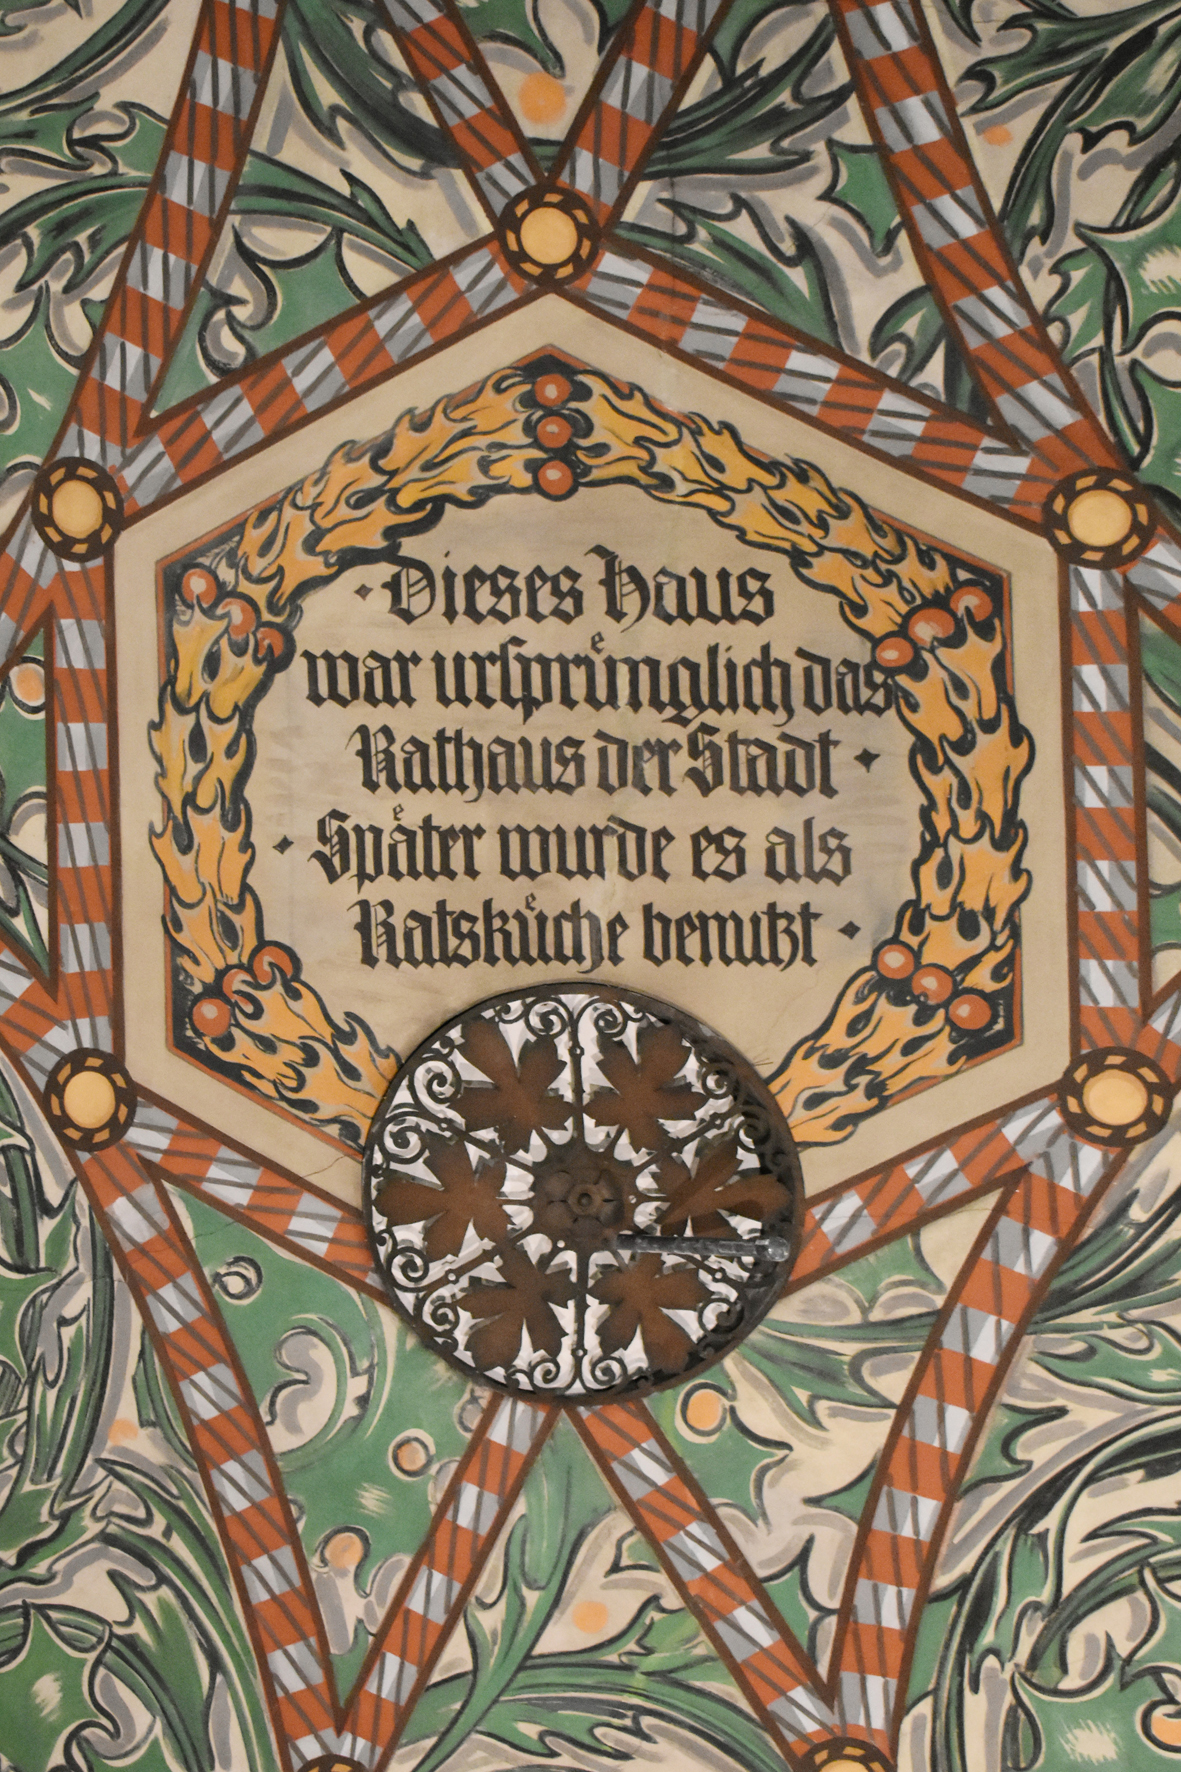 · Dieses Haus
war urſpruͤnglich das
Rathaus der Stadt ·
· Spaͤter wurde es als
Ratskuͤche benutzt ·